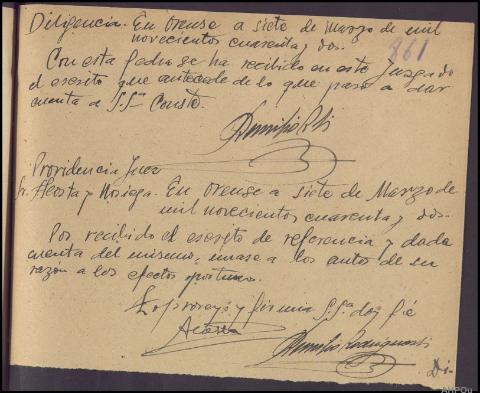 Diligencia. En Orense a siete de Marzo de mil
novecientos cuarenta y dos.
361
Con esta fecha se ha recibido en este Juzgado
el escrito que antecede de lo que paso a dar
cuenta a S.Sª Consté.
Providencia Juez
Sr. Acosta y Noriega. En Orense a siete de Marzo de
mil novecientos cuarenta y dos.
Por recibido el escrito de referencia y dada
cuenta del mismo, únase a los autos de su
razón a los efectos oportunos.
Lo proveyó y firma S.Sª doy fé
Acosta
Di-
AHPOu